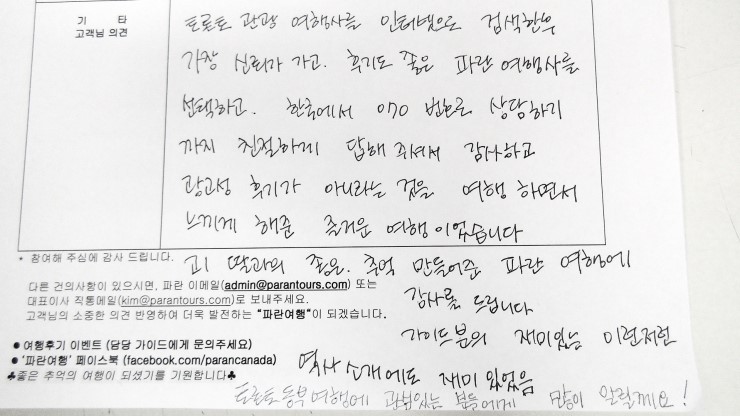 기 타
고객님 의견
토론토 관광 여행사를 인터넷으로 검색한후
가장 신뢰가 가고. 후기도 좋은 파란 여행사를
선택하고. 한국에서 070 번호로 상담하기
까지 친절하게 답해 주셔서 감사하고
광고성 후기가 아니라는 것을 여행 하면서
느끼게 해준 즐거운 여행 이었습니다
* 참여해 주심에 감사 드립니다.
고1 딸과의 좋은. 추억 만들어준 파란 여행에
감사를 드립니다
다른 건의사항이 있으시면, 파란 이메일(admin@parantours.com) 또는
대표이사 직통메일(kim@parantours.com)로 보내주세요.
고객님의 소중한 의견 반영하여 더욱 발전하는 "파란여행"이 되겠습니다.
가이드분의 재미있는 이런저런
역사 소개에도 재미 있었음
● 여행후기 이벤트 (담당 가이드에게 문의주세요)
● '파란여행' 페이스북 (facebook.com/parancanada)
♣좋은 추억의 여행이 되셨기를 기원합니다♣
토론토 동부여행에 관심있는 분들에게 많이 알릴께요!